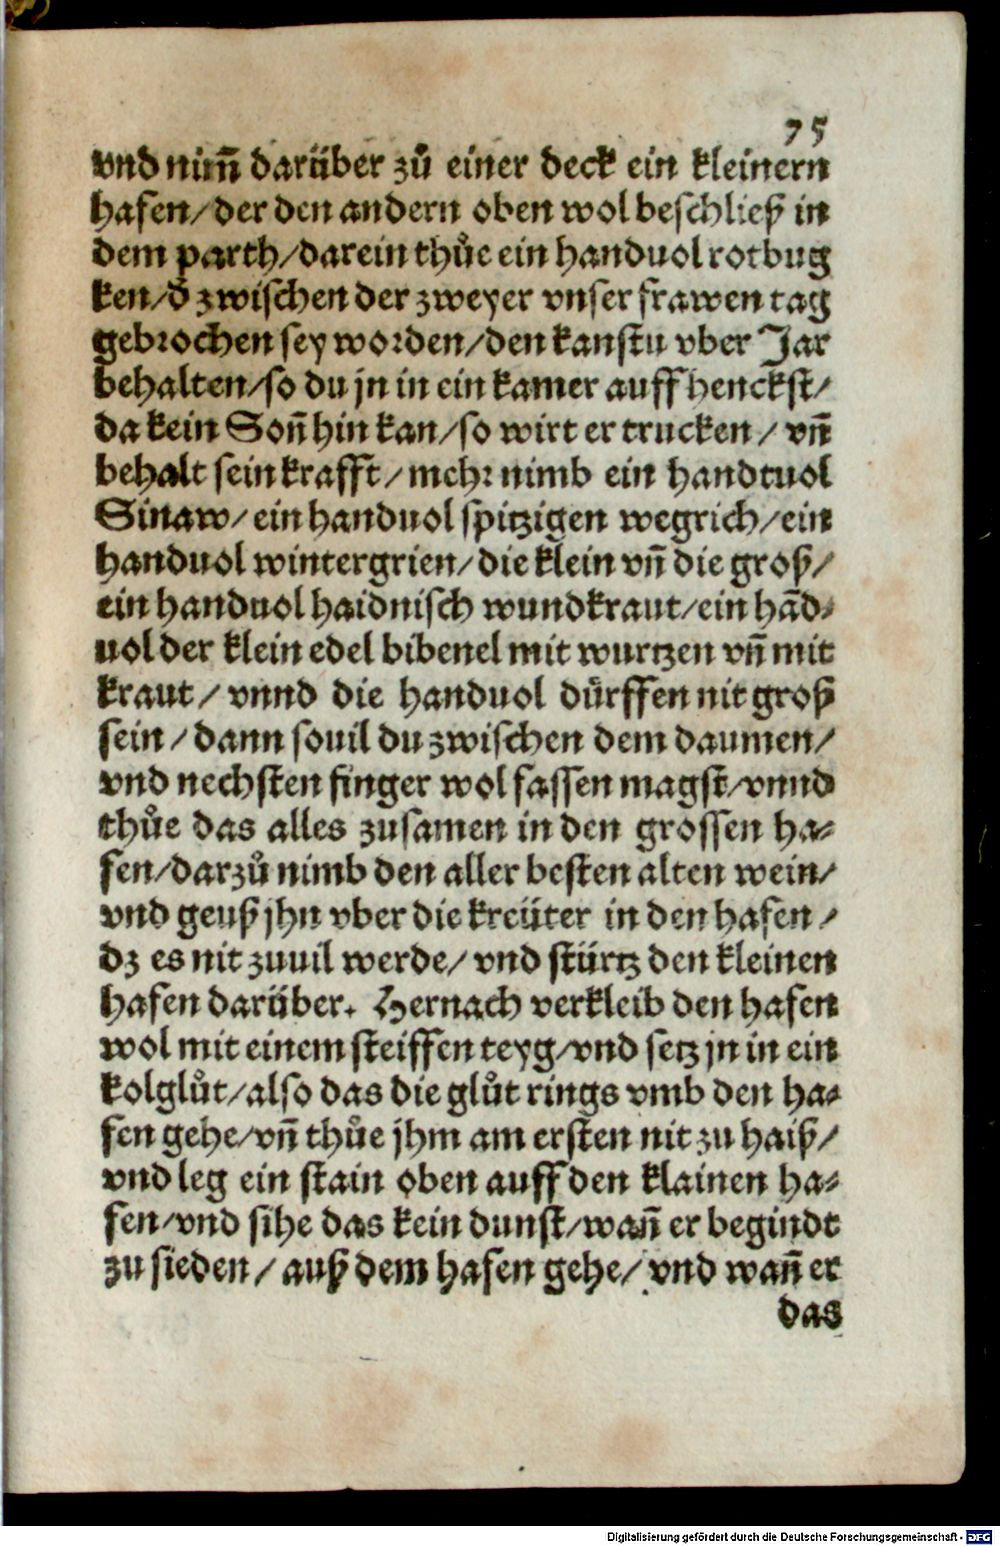 75
vnd nim̄ darüber zů einer deck ein kleinern
hafen/der den andern oben wol beschließ in
dem parth/darein thůe ein handuol rotbug
ken/d̄ zwischen der zweyer vnser frawen tag
gebrochen sey worden/den kanstu vber Jar
behalten/so du jn in ein kamer auff henckst/
da kein Son̄ hin kan/so wirt er trucken/vn̄
behalt sein krafft/mehr nimb ein handtuol
Sinaw/ein handuol spitzigen wegrich/ein
handuol wintergrien/die klein vn̄ die groß/
ein handuol haidnisch wundkraut/ein hād-
uol der klein edel bibenel mit wurtzen vn̄ mit
kraut/vnnd die handuol dürffen nit groß
sein/dann souil du zwischen dem daumen/
vnd nechsten finger wol fassen magst/vnnd
thůe das alles zusamen in den grossen ha-
fen/darzů nimb den aller besten alten wein/
vnd geuß jhn vber die kreüter in den hafen/
dz es nit zuuil werde/vnd stürtz den kleinen
hafen darüber. Hernach verkleib den hafen
wol mit einem steiffen teyg/vnd setz jn in ein
kolglůt/also das die glůt rings vmb den ha-
fen gehe/vn̄ thůe jhm am ersten nit zu haiß/
vnd leg ein stain oben auff den klainen ha-
fen/vnd sihe das kein dunst/wan̄ er begindt
zu sieden/auß dem hafen gehe/vnd wan̄ er
das
Digitalisierung gefördert durch die Deutsche Forschungsgemeinschaft - DFG